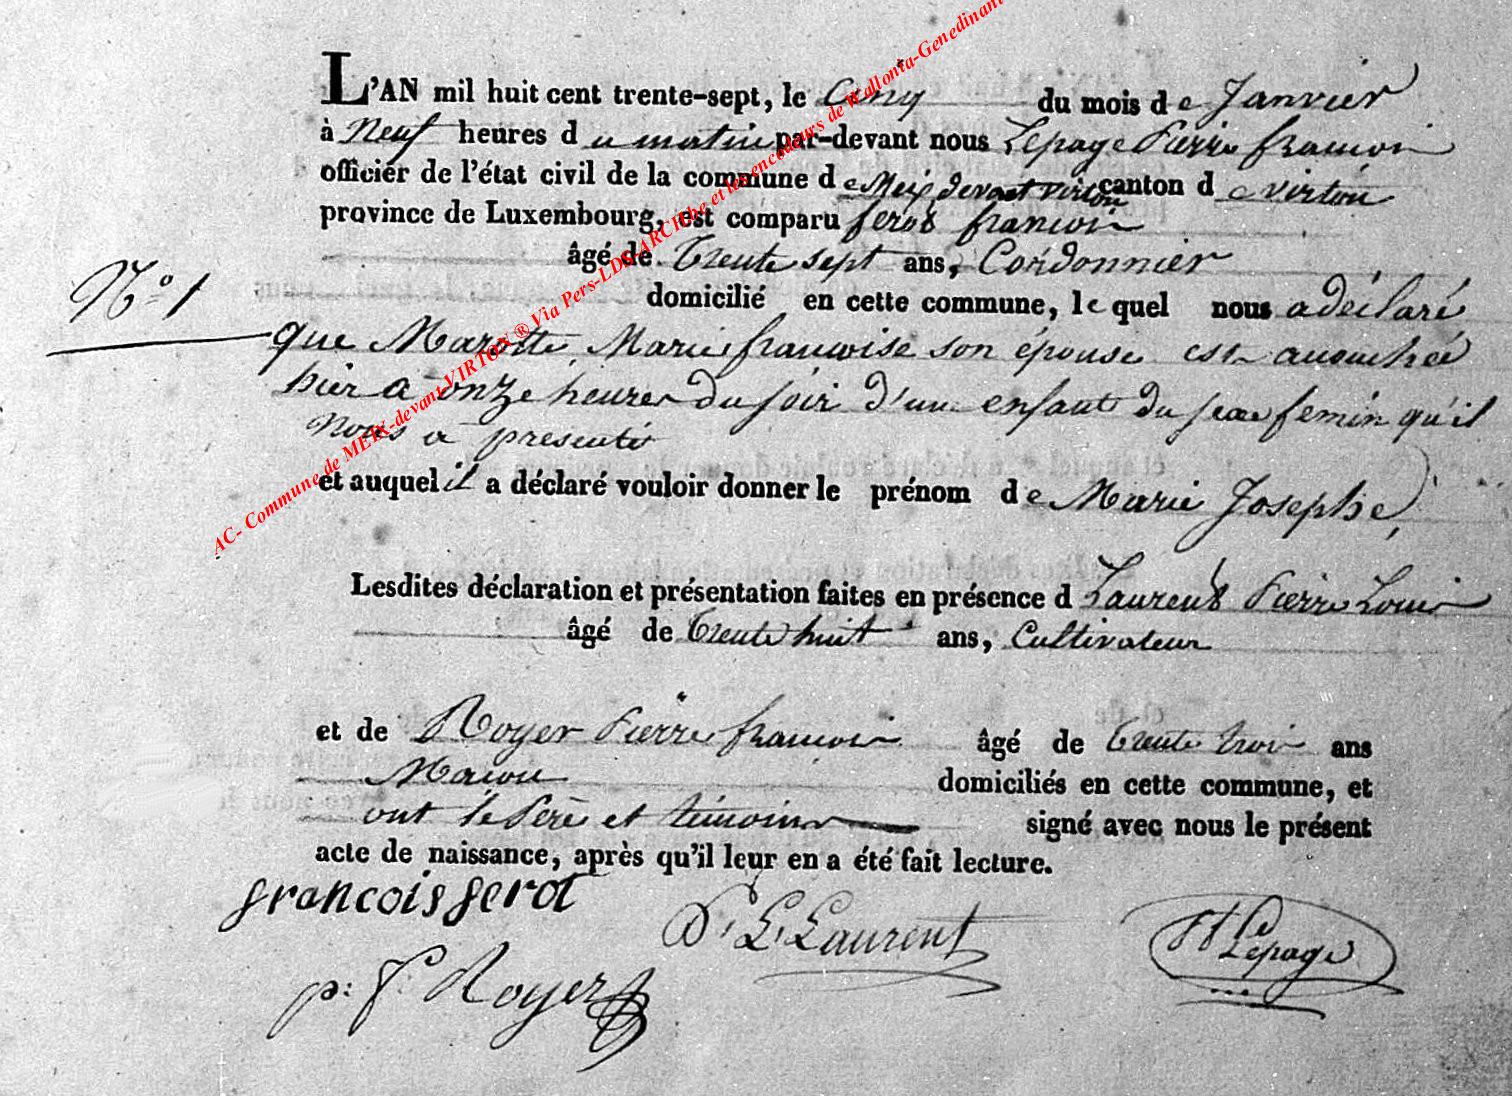 L'AN mil huit cent trente-sept, le Cinq du mois de Janvier
à Neuf heures du matin par-devant nous Lepage Pierre francois
officier de l'état civil de la commune de Meix devant virton canton de virton
province de Luxembourg, est comparu ferot francois
âgé de Trente sept ans, Cordonnier
domicilié en cette commune, lequel nous a déclaré
N.o 1
que Marotte Marie francoise son épouse est accouchée
hier a onze heures du soir d'un enfant du sexe femin qu'il
Nous a presenté
et auquel il a déclaré vouloir donner le prénom de Marie Josephe,
Lesdites déclaration et présentation faites en présence d Laurent Pierre Louis
âgé de Trente huit ans, Cultivateur
et de Royer Pierre francois âgé de Trente trois ans
Macon domiciliés en cette commune, et
ont le Père et témoins signé avec nous le présent
acte de naissance, après qu'il leur en a été fait lecture.
francois ferot
P. L. Laurent
Lepage
p. f. Royer
AC- Commune de MEIX-devant-VIRTON ® Via Pers-LDS-ARCH.be et les encodeurs de Wallonia-Genedinant